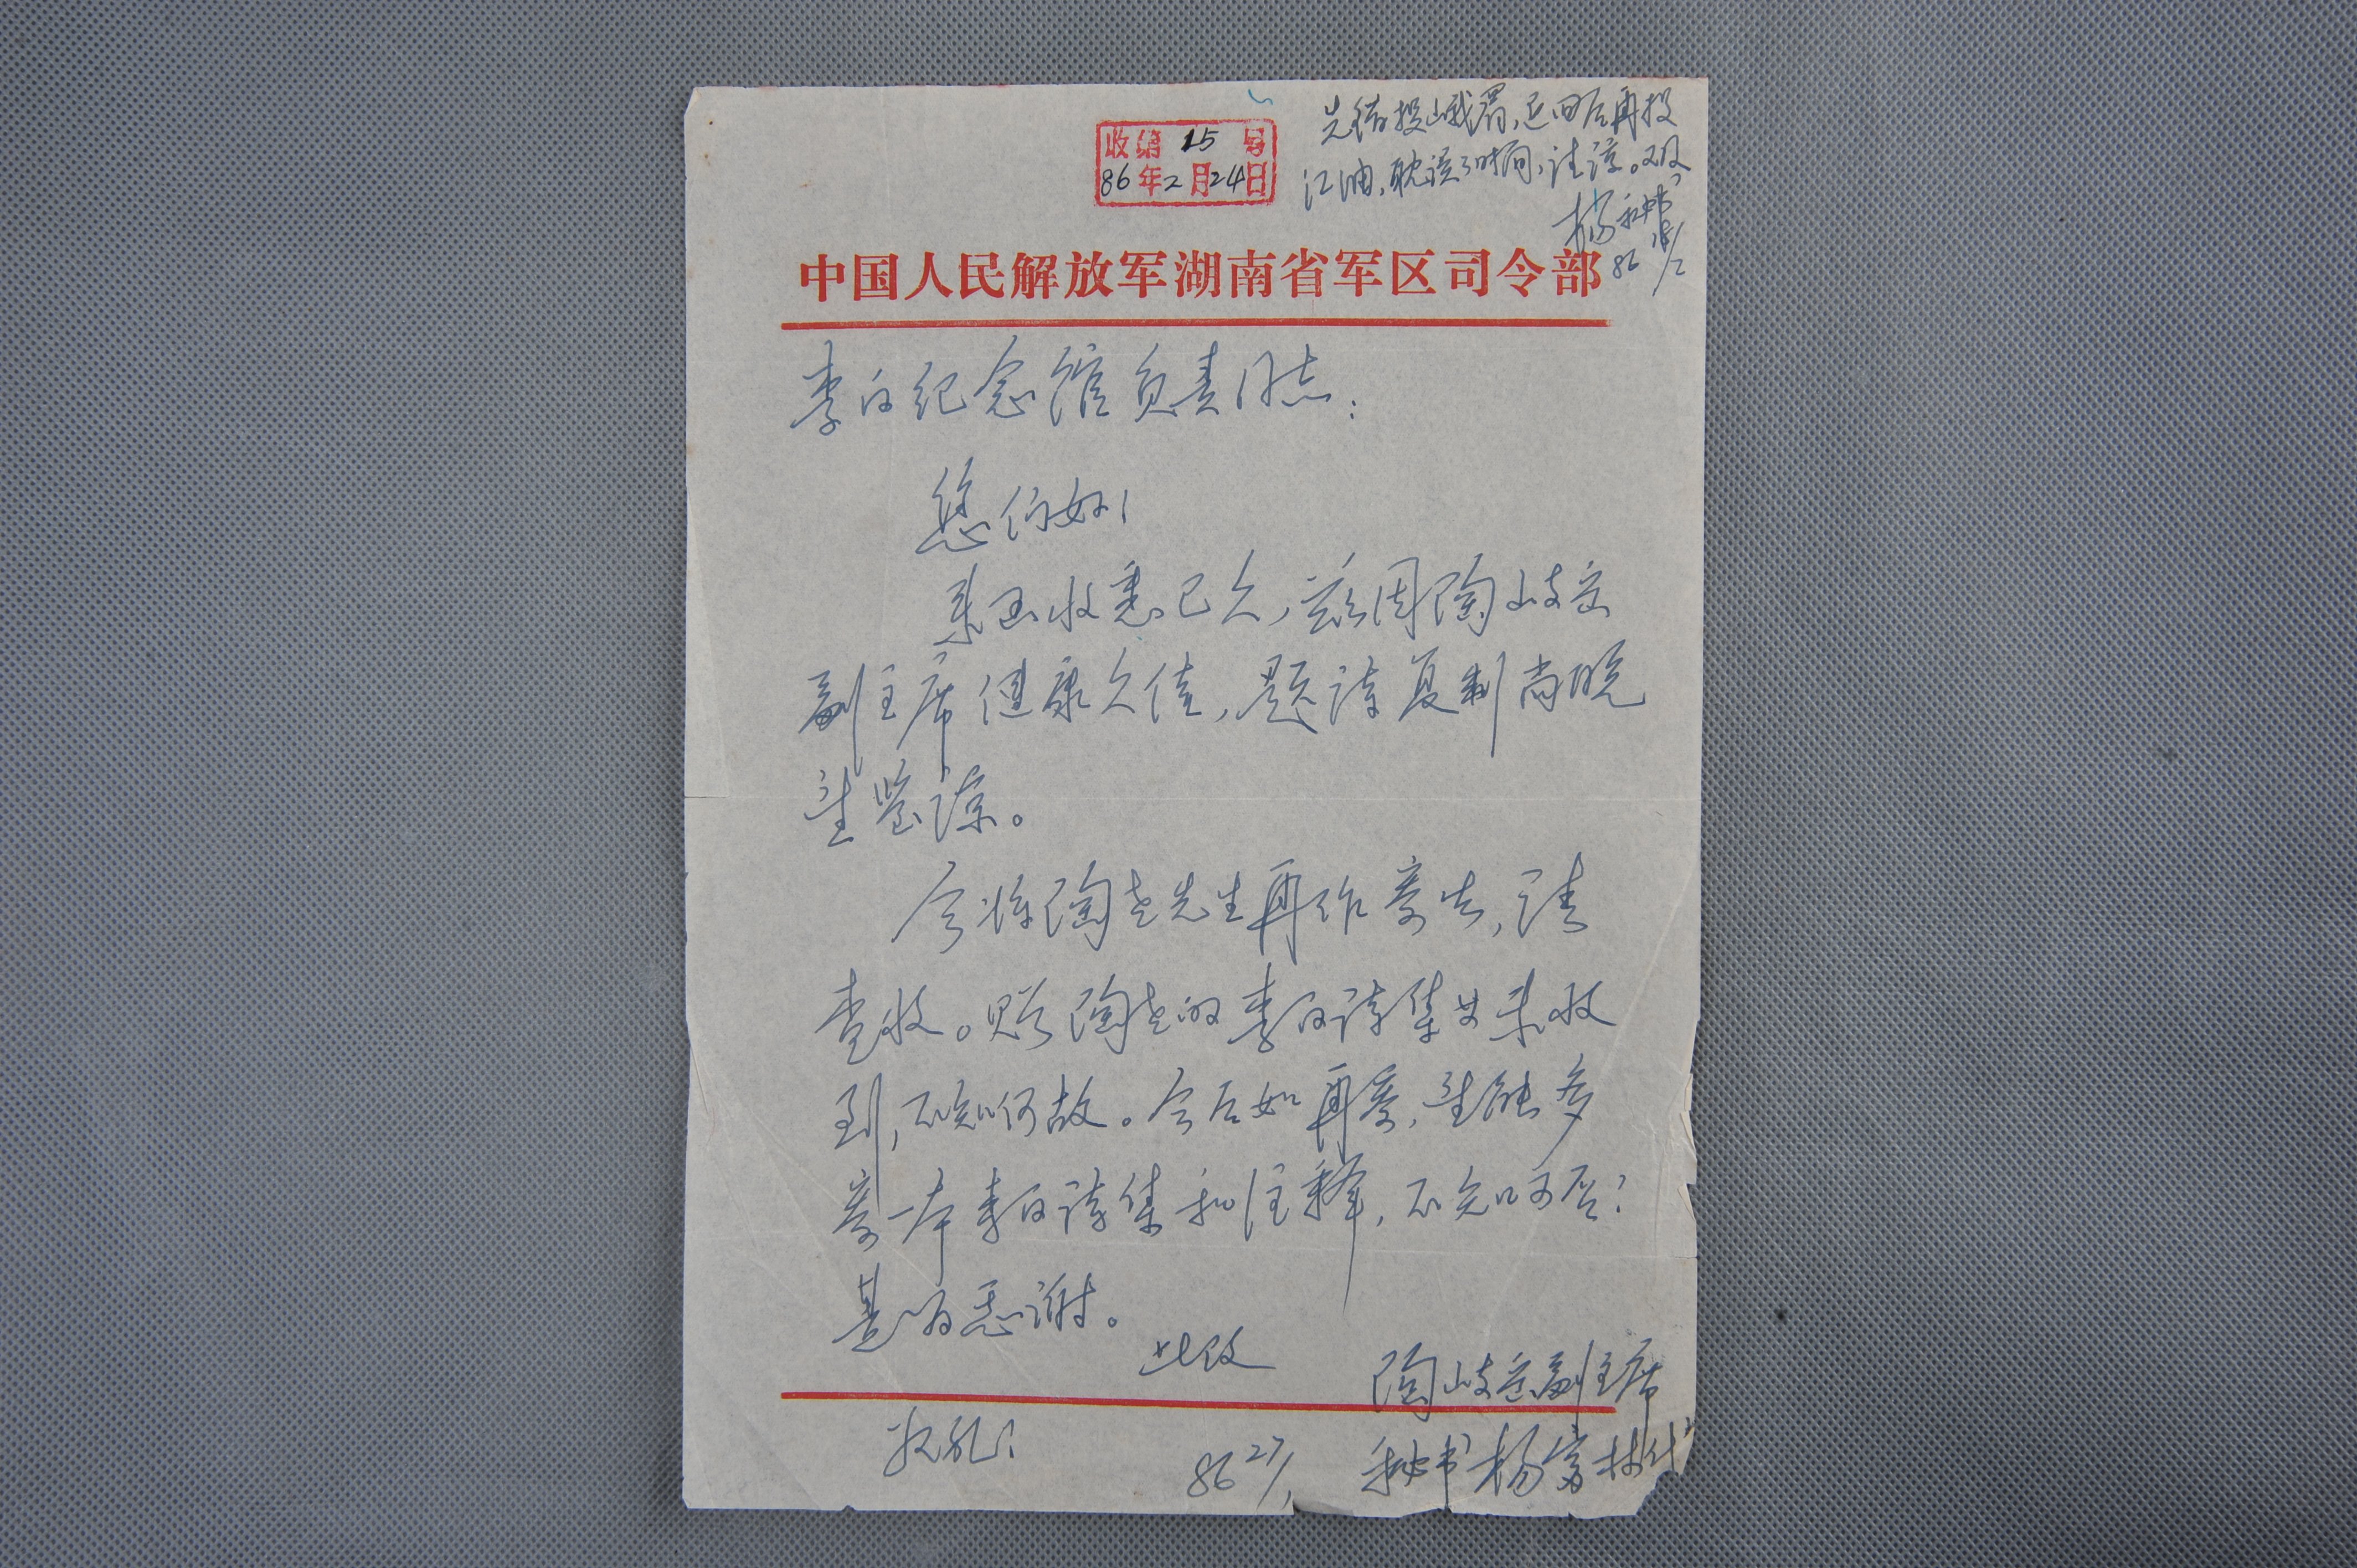 收第15号
86年2月24日
先错投峨眉,退回后再投
江油,耽误了时间,请谅。又及
杨秘书
86 18/2
中国人民解放军湖南省军区司令部
李白纪念馆负责同志:
您们好!
来函收悉已久,兹因陶峙岳
副主席健康欠佳,题诗复制尚晚
望鉴谅。
今将陶老先生再作寄出,请
查收。赠陶老的李白诗集廿未收
到,不知何故。今后如再寄,望能多
寄一本李白诗集和注释,不知可否?
甚为感谢。
此致
陶峙岳副主席
敬礼!
86 27/1
秘书 杨富林代